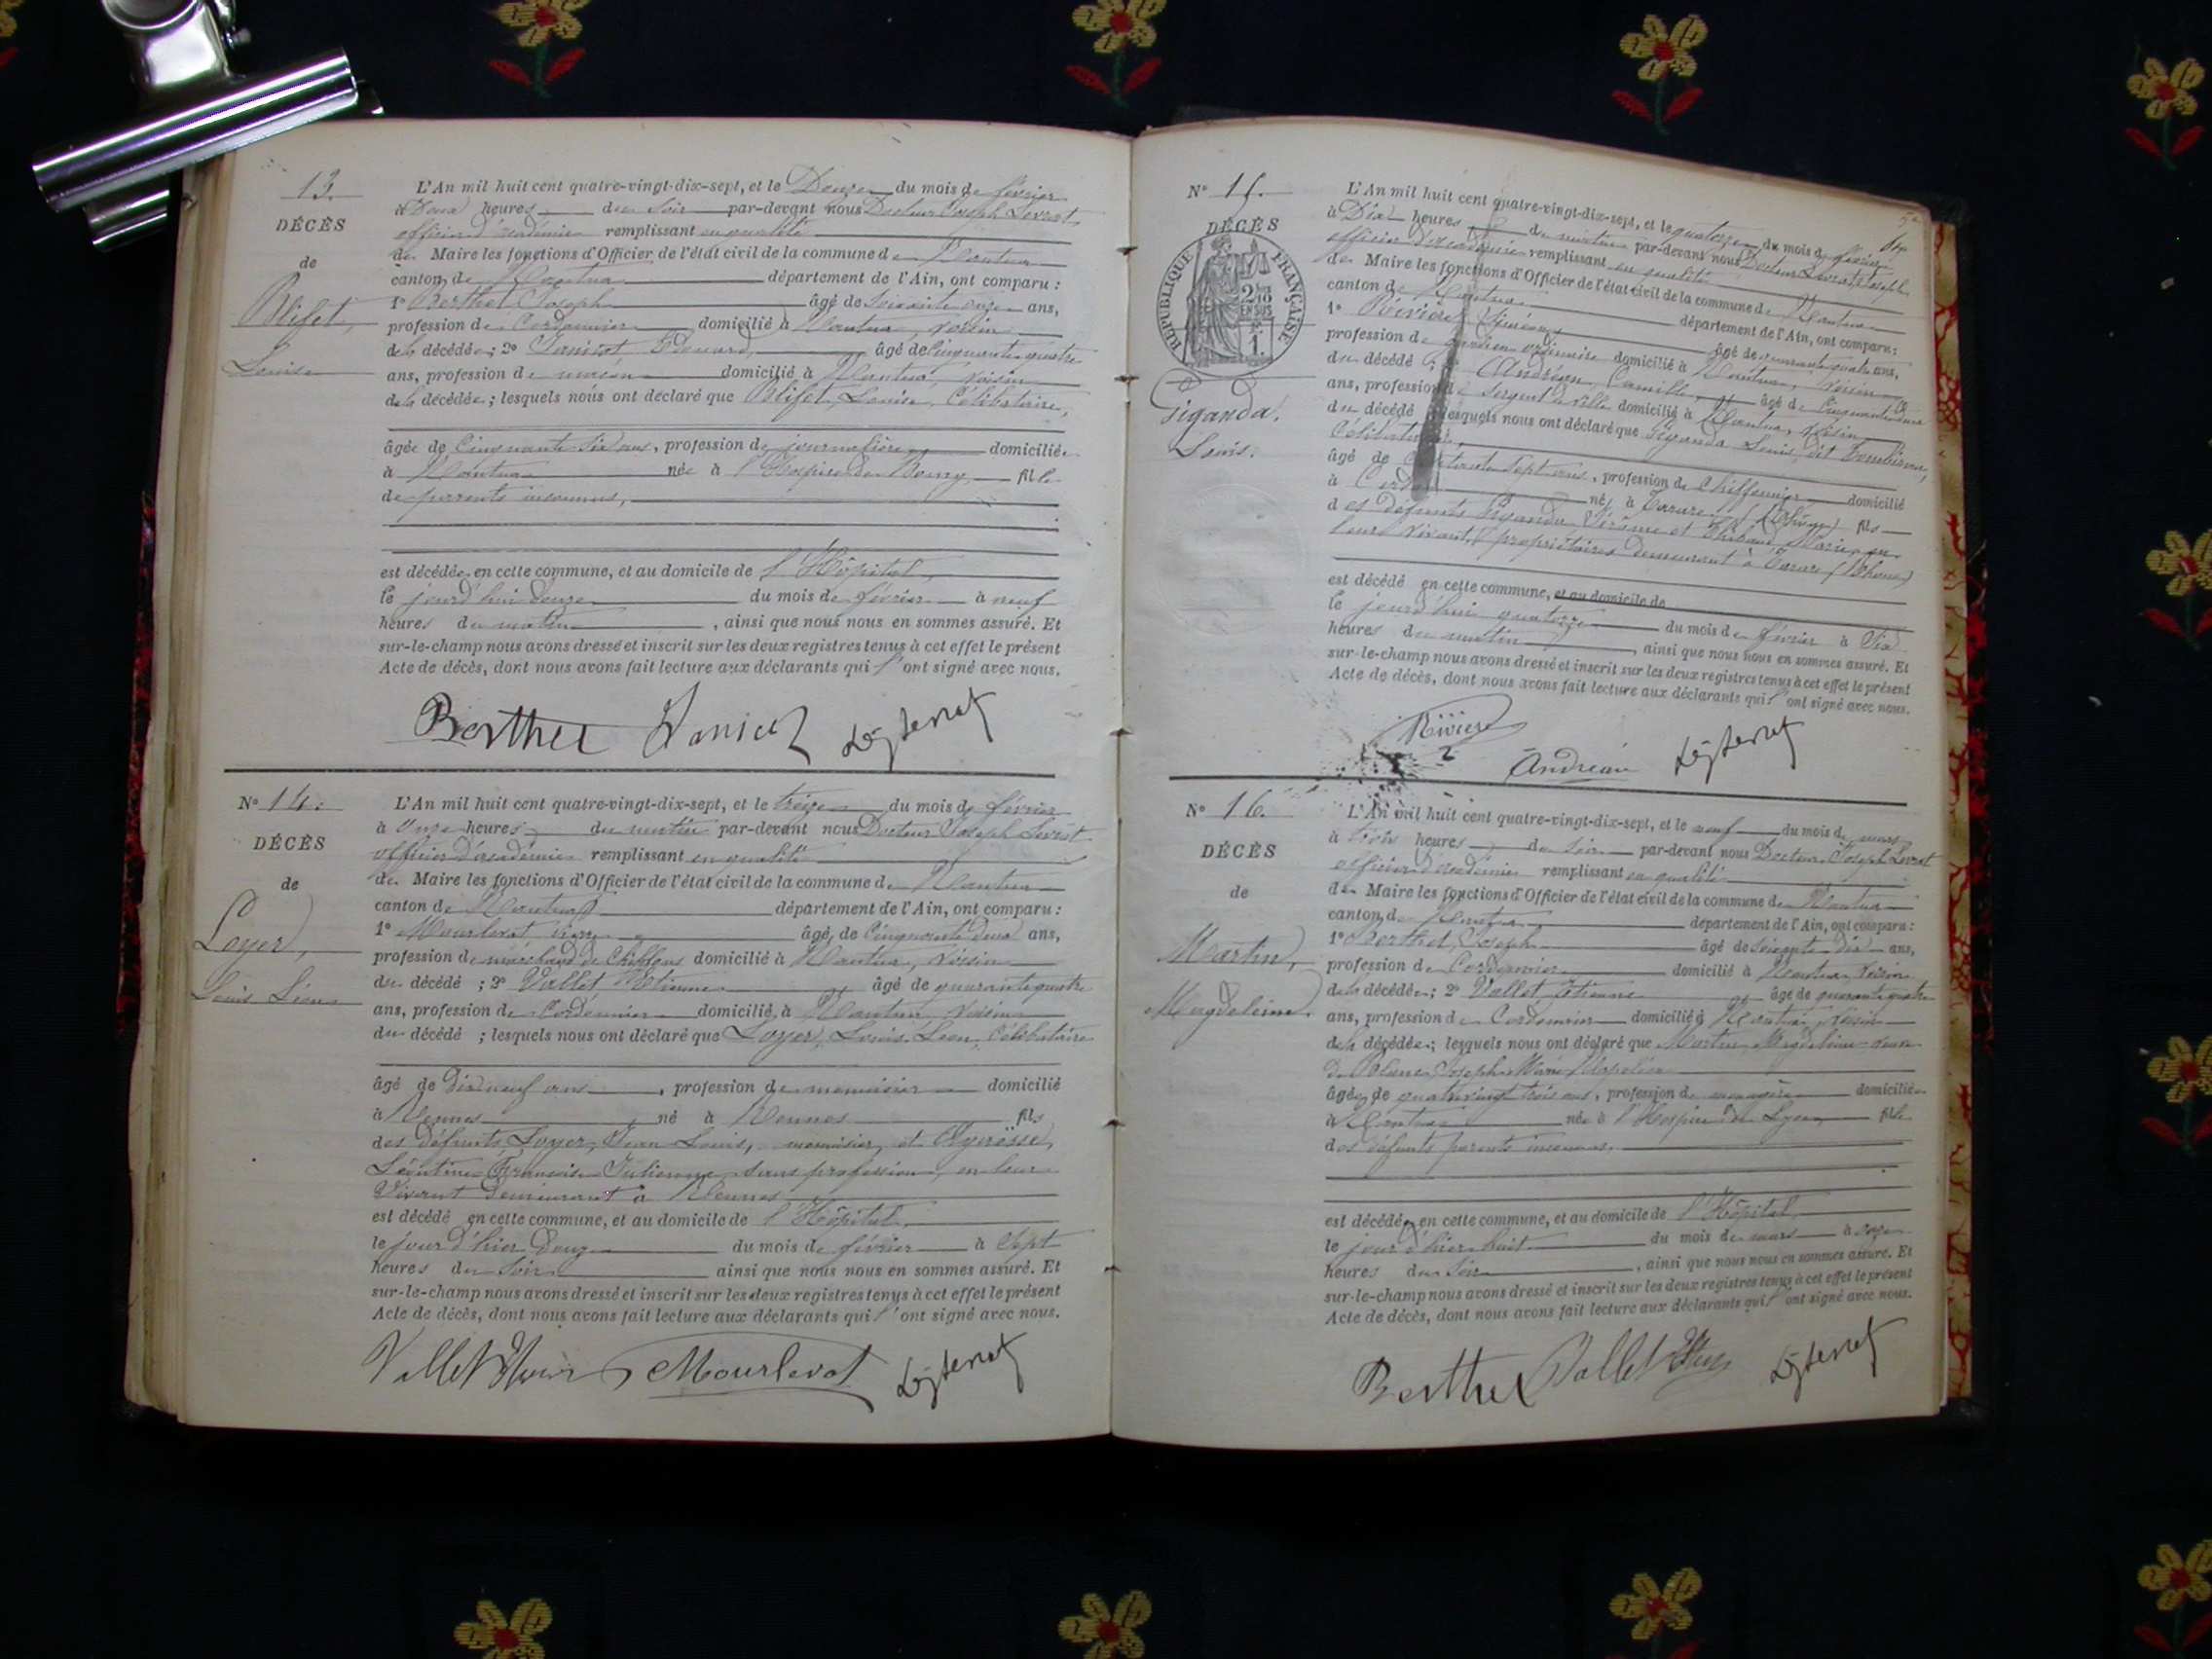 13.
DÉCÈS
de
Blifet,
Louise
L'An mil huit cent quatre-vingt-dix-sept, et le Douze du mois de février
à Deux heures du soir par-devant nous Docteur Joseph Levrat
officier d'académie remplissant en qualité
de Maire les fonctions d'Officier de l'état civil de la commune de Nantua
canton de Nantua département de l'Ain, ont comparu :
1° Berthet, Joseph âgé de soixante onze ans,
profession de Cordonnier domicilié à Nantua, voisin
de la décédée ; 2° Edouard, âgé de cinquante quatre
ans, profession de maçon domicilié à Nantua, voisin
de la décédée ; lesquels nous ont déclaré que Blifet, Louise, Célibataire,
âgée de Cinquante six ans, profession de journalière domiciliée
à Nantua née à l'Hospice de Bourg, fille
de parents inconnus,
est décédée en cette commune, et au domicile de l'Hôpital
le jourd'hui douze du mois de février à neuf
heures du matin , ainsi que nous nous en sommes assuré. Et
sur-le-champ nous avons dressé et inscrit sur les deux registres tenus à cet effet le présent
Acte de décès, dont nous avons fait lecture aux déclarants qui l'ont signé avec nous.
Berthet
N° 14.
DÉCÈS
de
Loyer,
Louis Léon
L'An mil huit cent quatre-vingt-dix-sept, et le treize du mois de février
à Onze heures du matin par-devant nous Docteur Joseph Levrat
officier d'académie remplissant en qualité
de Maire les fonctions d'Officier de l'état civil de la commune de Nantua
canton de Nantua département de l'Ain, ont comparu :
1° Mourlevat âgé de Cinquante deux ans,
profession de marchand de Chiffons domicilié à Nantua, voisin
du décédé ; 2° Vallet Etienne âgé de quarante quatre
ans, profession de Cordonnier domicilié à Nantua, voisin
du décédé ; lesquels nous ont déclaré que Loyer, Louis, Léon, Célibataire
âgé de dix neuf ans , profession de menuisier domicilié
à Rennes né à Rennes fils
des défunts Loyer, Jean Louis, menuisier, et
Léontine Françoise Julienne sans profession, en leur
vivant demeurant à Rennes
est décédé en cette commune, et au domicile de l'Hôpital
le jour d'hier Douze du mois de février à Sept
heures du soir ainsi que nous nous en sommes assuré. Et
sur-le-champ nous avons dressé et inscrit sur les deux registres tenus à cet effet le présent
Acte de décès, dont nous avons fait lecture aux déclarants qui l'ont signé avec nous.
Vallet Mourlevat
N° 15.
DÉCÈS
RÉPUBLIQUE FRANÇAISE
EN SUS
Giganda,
Louis.
L'An mil huit cent quatre-vingt-dix-sept, et le quatorze du mois de février
à Dix heures du matin par-devant nous Docteur Levrat Joseph
officier d'académie remplissant en qualité
de Maire les fonctions d'Officier de l'état civil de la commune de Nantua
canton de Nantua département de l'Ain, ont comparu :
1° Rivière Siméon âgé de quarante quatre ans,
profession de gardien ordinaire domicilié à Nantua, voisin
du décédé ; Andréan, Camille, âgé de Cinquante deux
ans, profession de Sergent de ville domicilié à Nantua, voisin
du décédé lesquels nous ont déclaré que Giganda Louis, dit
Célibataire,
âgé de sept ans, profession de Chiffonnier domicilié
à né à Tarare (Rhône) fils
des défunts Giganda Jérôme et Thibaud, Marie, en
leur vivant, propriétaires demeurant à Tarare (Rhône)
est décédé en cette commune, et au domicile de
le jourd'hui quatorze du mois de février à Six
heures du matin , ainsi que nous nous en sommes assuré. Et
sur-le-champ nous avons dressé et inscrit sur les deux registres tenus à cet effet le présent
Acte de décès, dont nous avons fait lecture aux déclarants qui l'ont signé avec nous.
Rivière
Andréan
N° 16.
DÉCÈS
de
Martin,
Magdeleine.
L'An mil huit cent quatre-vingt-dix-sept, et le neuf du mois de mars
à trois heures du soir par-devant nous Docteur Joseph Levrat
officier d'académie remplissant en qualité
de Maire les fonctions d'Officier de l'état civil de la commune de Nantua
canton de Nantua département de l'Ain, ont comparu :
1° Berthet, Joseph âgé de soixante dix ans,
profession de Cordonnier domicilié à Nantua, voisin
de la décédée ; 2° Vallet Etienne âgé de quarante quatre
ans, profession de Cordonnier domicilié à Nantua, voisin
de la décédée ; lesquels nous ont déclaré que Martin, Magdeleine veuve
de Blanc, Joseph Marie Napoléon
âgée de quatre vingt trois ans, profession de ménagère domiciliée
à Nantua née à l'Hospice de Lyon fille
des défunts parents inconnus.
est décédée en cette commune, et au domicile de l'Hôpital
le jour d'hier huit du mois de mars à onze
heures du soir , ainsi que nous nous en sommes assuré. Et
sur-le-champ nous avons dressé et inscrit sur les deux registres tenus à cet effet le présent
Acte de décès, dont nous avons fait lecture aux déclarants qui l'ont signé avec nous.
Berthet Vallet